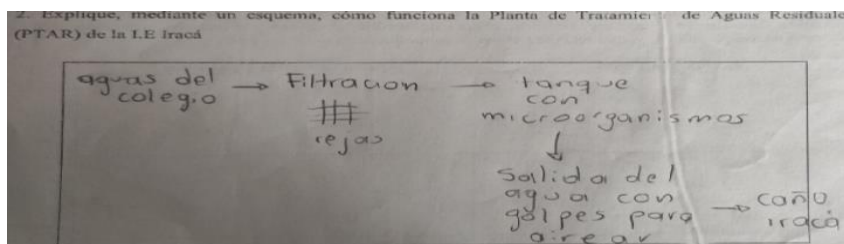 2. Explique, mediante un esquema, cómo funciona la Planta de Tratamie de Aguas Residuale
(PTAR) de la I.E Iracá
aguas del
colegio
→ Filtracion
rejas
→ tanque
con
microorganismos
↓
Salida del
agua con
golpes para
airear
→ caño
iracá